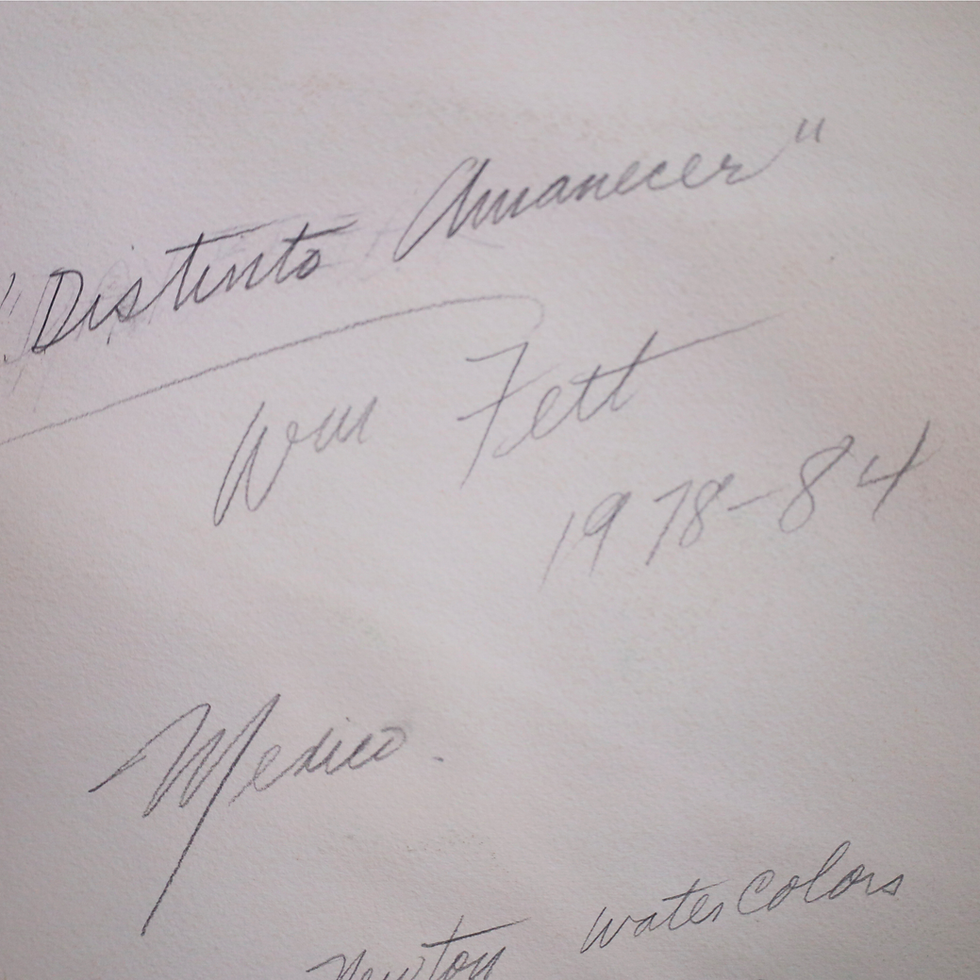 "Distinto Amanecer"
Wm Fett
1978-84
Mexico.
Newton watercolors